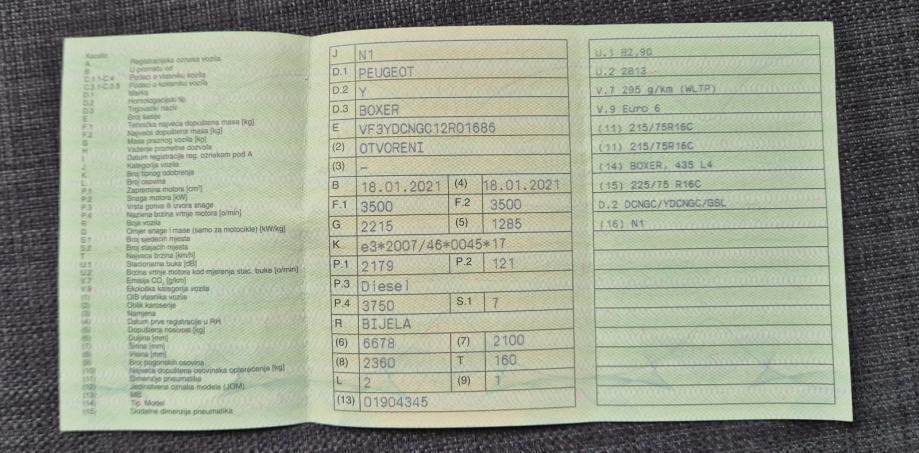 Kazalo:
A Registracijska oznaka vozila
B U prometu od
C.1.1-C.4 Podaci o vlasniku vozila
C.3.1-C.3.3 Podaci o korisniku vozila
D.1 Marka
D.2 Homologacijski tip
D.3 Trgovački naziv
E Broj šasije
F.1 Tehnička najveća dopuštena masa [kg]
F.2 Najveća dopuštena masa [kg]
G Masa praznog vozila [kg]
H Važenje prometne dozvole
I Datum registracije reg. oznakom pod A
J Kategorija vozila
K Broj tipnog odobrenja
L Broj osovina
P.1 Zapremina motora [cm³]
P.2 Snaga motora [kW]
P.3 Vrsta goriva ili izvora snage
P.4 Nazivna brzina vrtnje motora [o/min]
R Boja vozila
Q Omjer snage i mase (samo za motocikle) [kW/kg]
S.1 Broj sjedećih mjesta
S.2 Broj stajaćih mjesta
T Najveća brzina [km/h]
U.1 Stacionarna buka [dB]
U.2 Brzina vrtnje motora kod mjerenja stac. buke [o/min]
V.7 Emisija CO₂ [g/km]
V.9 Ekološka kategorija vozila
(1) OIB vlasnika vozila
(2) Oblik karoserije
(3) Namjena
(4) Datum prve registracije u RH
(5) Dopuštena nosivost [kg]
(6) Duljina [mm]
(7) Širina [mm]
(8) Visina [mm]
(9) Broj pogonskih osovina
(10) Najveća dopuštena osovinska opterećenja [kg]
(11) Dimenzije pneumatika
(12) Jedinstvena oznaka modela (JOM)
(13) MB
(14) Tip, Model
(15) Dodatne dimenzije pneumatika
J N1
D.1 PEUGEOT
D.2 Y
D.3 BOXER
E VF3YDCNGC12R01686
(2) OTVORENI
(3) –
B 18.01.2021 (4) 18.01.2021
F.1 3500 F.2 3500
G 2215 (5) 1285
K e3*2007/46*0045*17
P.1 2179 P.2 121
P.3 Diesel
P.4 3750 S.1 7
R BIJELA
(6) 6678 (7) 2100
(8) 2360 T 160
L 2 (9) 1
(13) 01904345
U.1 82,90
U.2 2813
V.7 295 g/km (WLTP)
V.9 Euro 6
(11) 215/75R16C
(11) 215/75R16C
(14) BOXER, 435 L4
(15) 225/75 R16C
D.2 DCNGC/YDCNGC/GSL
(16) N1